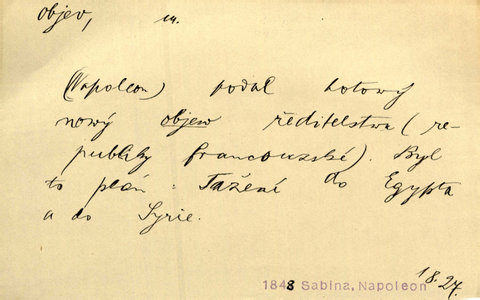 objev, m.
(Napoleon) podal hotowý
nowý objew ředitelstwu (re-
publiky francouzské). Byl
to plán: Tažení do Egypta
a do Syrie.
1848 Sabina, Napoleon I 8. 27.